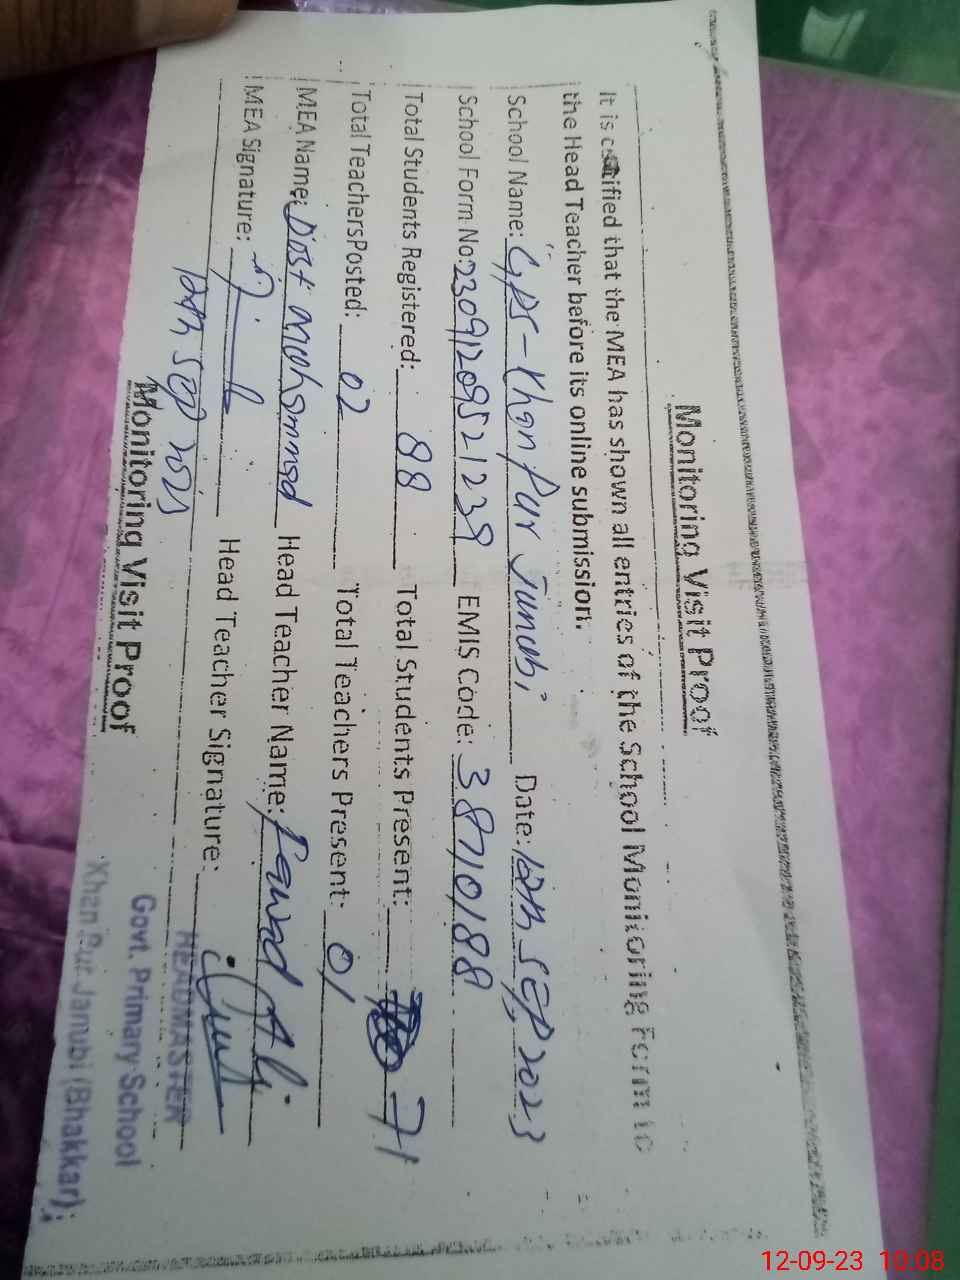 Monitoring Visit Proof
It is certified that the MEA has shown all entries of the School Monitoring Form to
the Head Teacher before its online submission.
School Name: GPS-Khan Pur Janubi Date: 12th SEP, 2023
School Form No: 23091209521239 EMIS Code: 38710188
Total Students Registered: 88 Total Students Present: 71
Total TeachersPosted: 02 Total Teachers Present: 01
MEA Name: Dost Mohammad Head Teacher Name: Fawad Ali
MEA Signature: Head Teacher Signature:
12th Sep
HEADMASTER
Govt. Primary School
Khan Pur Janubi (Bhakkar)
Monitoring Visit Proof
12-09-23 10:08